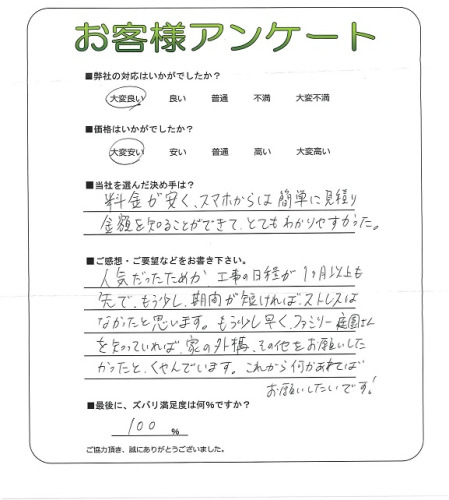 お客様アンケート
■弊社の対応はいかがでしたか？
大変良い 良い 普通 不満 大変不満
■価格はいかがでしたか？
大変安い 安い 普通 高い 大変高い
■当社を選んだ決め手は？
料金が安く、スマホからは簡単に見積り
金額を知ることができて、とてもわかりやすかった。
■ご感想・ご要望などをお書き下さい。
人気だったためか 工事の日程が1ヶ月以上も
先で、もう少し、期間が短ければ、ストレスは
なかったと思います。もう少し早く、ファミリー庭園さん
を知っていれば、家の外構、その他をお願いした
かったと、くやんでいます。これから何かあれば
お願いしたいです！
■最後に、ズバリ満足度は何%ですか？
100 %
ご協力頂き、誠にありがとうございました。